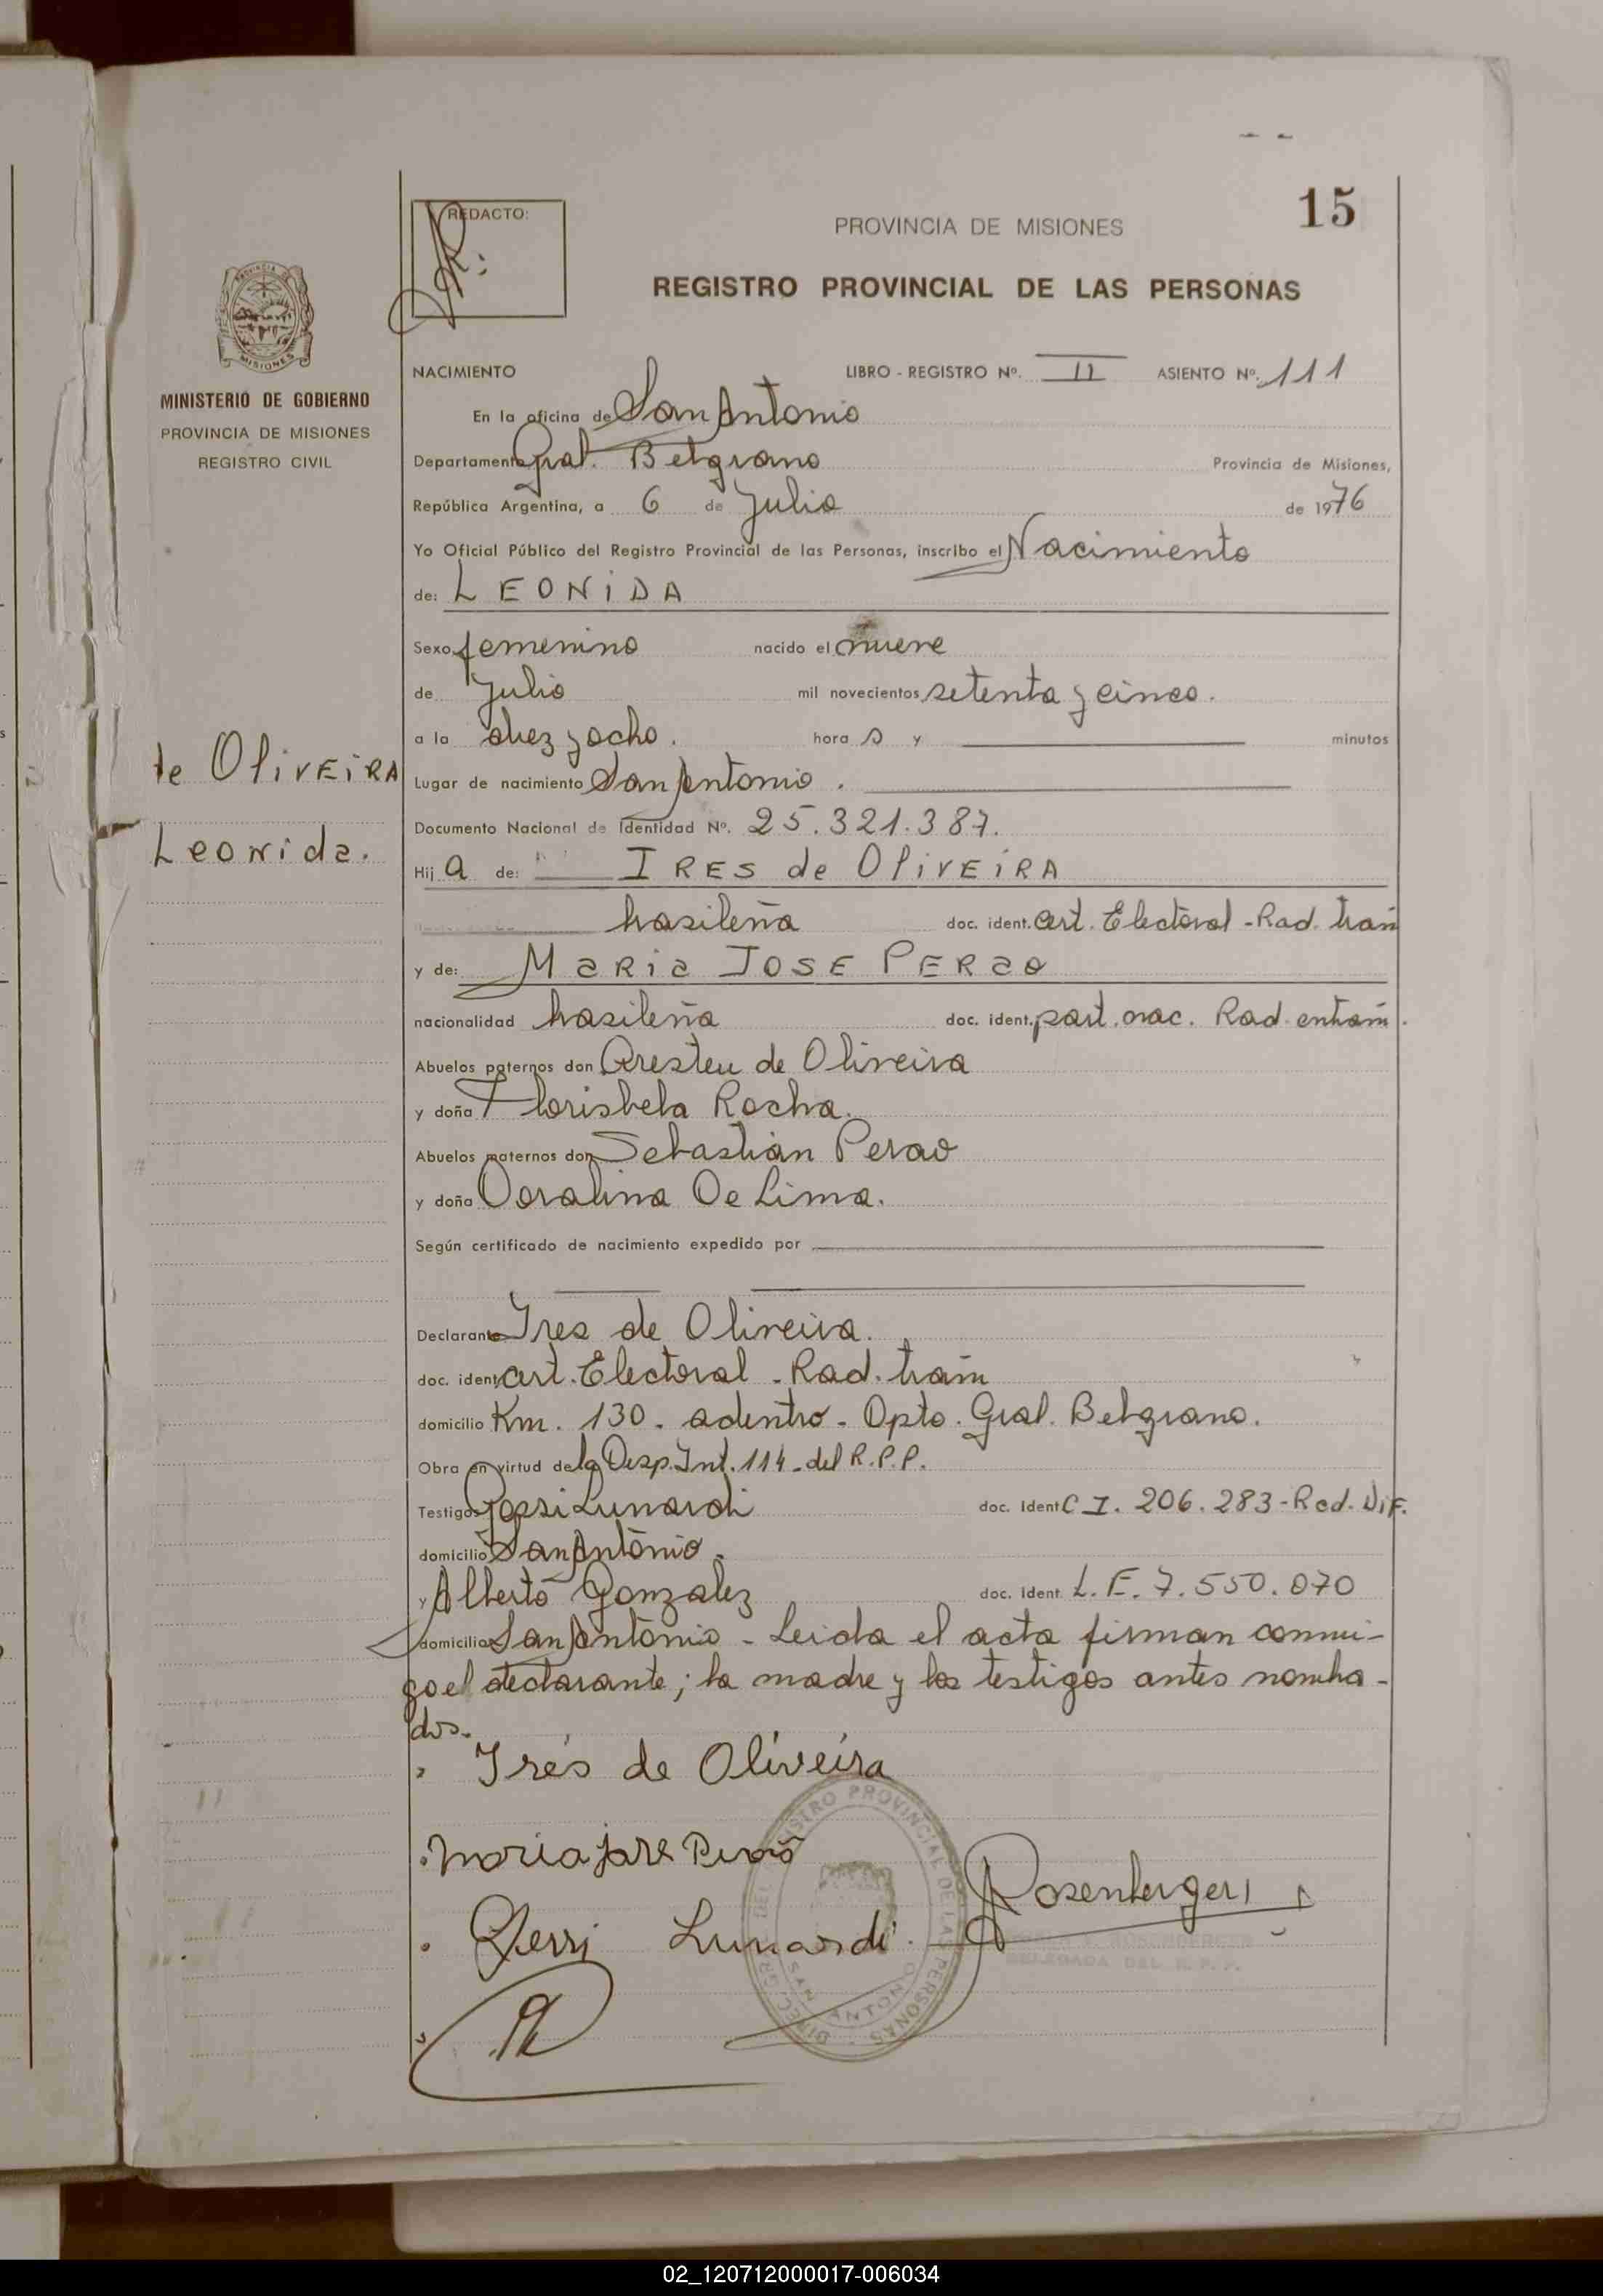 15
REDACTO:
PROVINCIA DE MISIONES
REGISTRO PROVINCIAL DE LAS PERSONAS
MISIONES
MINISTERIO DE GOBIERNO
PROVINCIA DE MISIONES
REGISTRO CIVIL
de OLIVEIRA
Leonida.
NACIMIENTO LIBRO - REGISTRO Nº. II ASIENTO Nº. 111
En la oficina de San Antonio
Departamento Gral. Belgrano Provincia de Misiones,
República Argentina, a 6 de Julio de 1976
Yo Oficial Público del Registro Provincial de las Personas, inscribo el Nacimiento
de: LEONIDA
Sexo femenino nacido el nueve
de Julio mil novecientos setenta y cinco.
a la diez y ocho. hora s y minutos
Lugar de nacimiento San Antonio.
Documento Nacional de Identidad Nº. 25.321.387.
Hij a de: IRES de OLIVEIRA
brasileña doc. ident. Cert. Electoral - Rad. tram
y de: MARIA JOSE PERAO
nacionalidad brasileña doc. ident. part. nac. Rad. entram.
Abuelos paternos don Aresteu de Oliveira
y doña Florisbela Rocha.
Abuelos maternos don Sebastián Perao
y doña Doralina De Lima.
Según certificado de nacimiento expedido por
Declarante Ires de Oliveira.
doc. ident. Cert. Electoral - Rad. tram
domicilio Km. 130 - adentro - Dpto. Gral. Belgrano.
Obra en virtud de la Disp. Int. 114 - del R.P.P.
Testigos Gessi Lunardi doc. Ident C I. 206.283 - Red. Dif.
domicilio San Antonio -
y Alberto Gonzalez doc. Ident. L.E. 7.550.070
domicilio San Antonio - Leida el acta firman conmi-
go el declarante; la madre y los testigos antes nombra-
dos.
Irés de Oliveira
Maria José Perão
Lunardi
Rosenberger
DELEGADA DEL R. P. P.
02_120712000017-006034